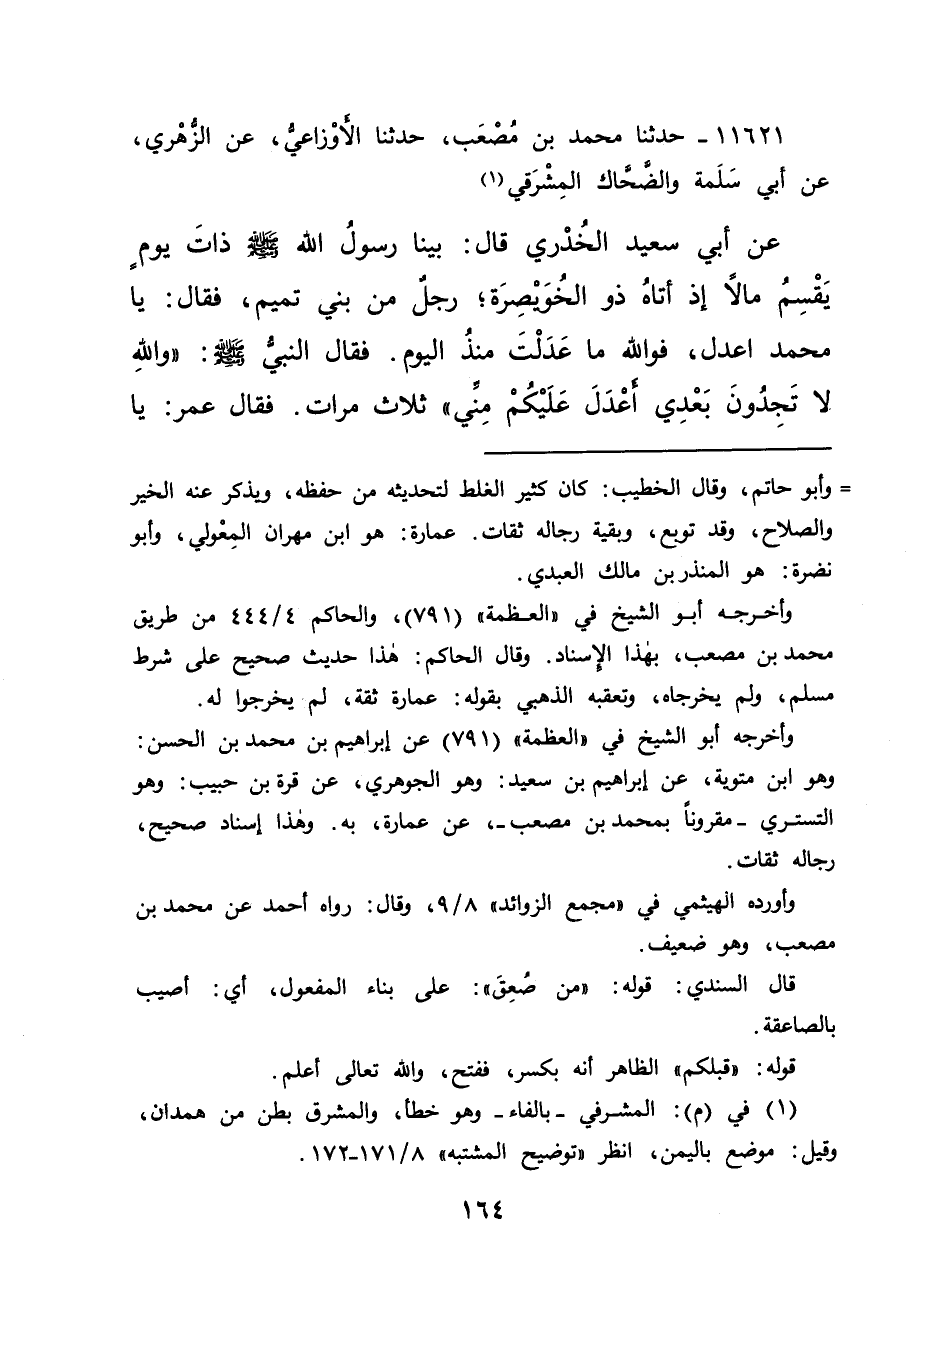 ١١٦٢١ ـ حدثنا محمد بن مُصْعَب، حدثنا الأَوْزاعيُّ، عن الزُّهْري،
عن أبي سَلَمة والضَّحَّاك المِشْرَقي(١)
عن أبي سعيد الخُدْري قال: بينا رسولُ الله ﷺ ذاتَ يومٍ
يَقْسِمُ مالًا إذ أتاهُ ذو الخُوَيْصِرَة؛ رجلٌ من بني تميم، فقال: يا
محمد اعدل، فوالله ما عَدَلْتَ منذُ اليوم. فقال النبيُّ ﷺ: «واللهِ
لا تَجِدُونَ بَعْدِي أَعْدَلَ عَلَيْكُمْ مِنِّي» ثلاث مرات. فقال عمر: يا
= وأبو حاتم، وقال الخطيب: كان كثير الغلط لتحديثه من حفظه، ويذكر عنه الخير
والصلاح، وقد توبع، وبقية رجاله ثقات. عمارة: هو ابن مهران المِعْولي، وأبو
نضرة: هو المنذر بن مالك العبدي.
وأخرجه أبو الشيخ في «العظمة» (٧٩١)، والحاكم ٤٤٤/٤ من طريق
محمد بن مصعب، بهٰذا الإسناد. وقال الحاكم: هٰذا حديث صحيح على شرط
مسلم، ولم يخرجاه، وتعقبه الذهبي بقوله: عمارة ثقة، لم يخرجوا له.
وأخرجه أبو الشيخ في «العظمة» (٧٩١) عن إبراهيم بن محمد بن الحسن:
وهو ابن متوية، عن إبراهيم بن سعيد: وهو الجوهري، عن قرة بن حبيب: وهو
التستري ـ مقروناً بمحمد بن مصعب ـ، عن عمارة، به. وهٰذا إسناد صحيح،
رجاله ثقات.
وأورده الهيثمي في «مجمع الزوائد» ٩/٨، وقال: رواه أحمد عن محمد بن
مصعب، وهو ضعيف.
قال السندي: قوله: «من صُعِقَ»: على بناء المفعول، أي: أصيب
بالصاعقة.
قوله: «قبلكم» الظاهر أنه بكسر، ففتح، والله تعالى أعلم.
(١) في (م): المشرفي ـ بالفاء ـ وهو خطأ، والمشرق بطن من همدان،
وقيل: موضع باليمن، انظر «توضيح المشتبه» ١٧١/٨-١٧٢.
١٦٤